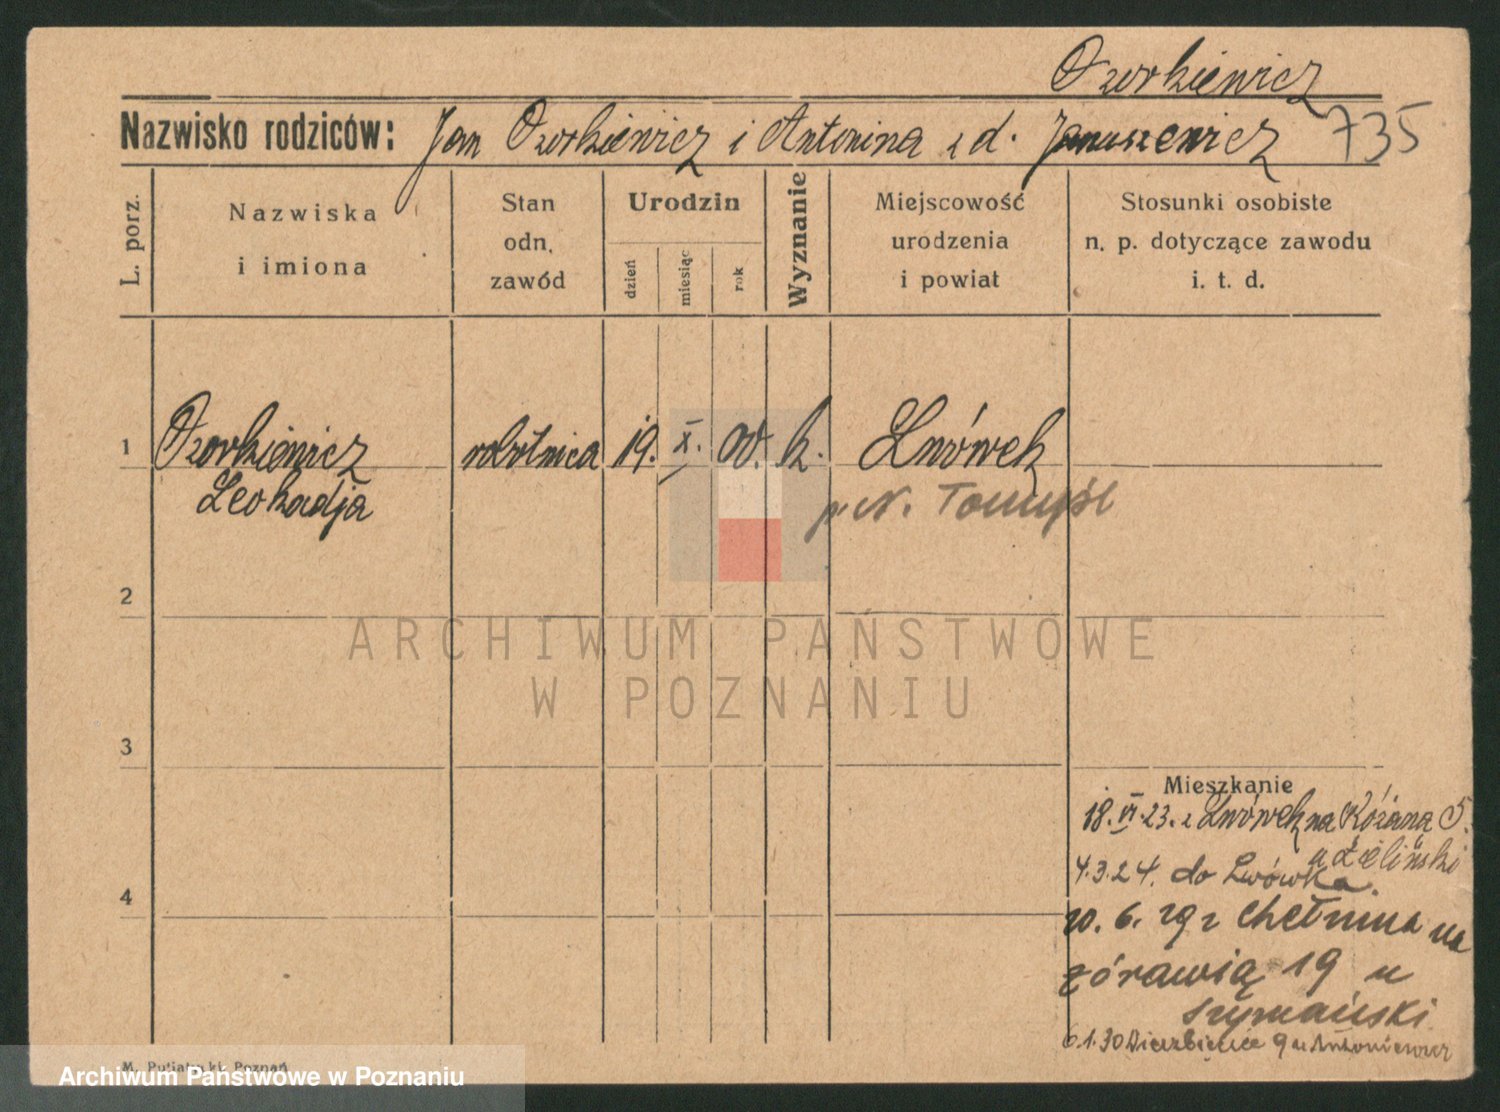 Ozorkiewicz
Nazwisko rodziców: Jan Ozorkiewicz i Antonina z d. Januszewicz 735
L. porz.
Nazwiska
i imiona
Stan
odn.
zawód
Urodzin
dzień
miesiąc
rok
Wyznanie
Miejscowość
urodzenia
i powiat
Stosunki osobiste
n. p. dotyczące zawodu
i. t. d.
1 Ozorkiewicz robotnica 19. X. 00. k. Lwówek
Leokadja p. N. Tomyśl
2
ARCHIWUM PAŃSTWOWE
W POZNANIU
3
Mieszkanie
18. VI. 23. z Lwówek na Różana 5.
u Zieliński
4.3.24. do Lwówka.
4
20. 6. 29 z Chełmina na
Żórawią 19 u
Szymański
6.1.30 9 u Antoniewicz
M. Putiatycki, Poznań
Archiwum Państwowe w Poznaniu